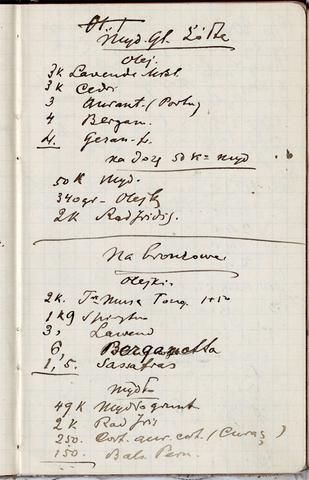 Myd. Gl. Żółte
Olej.
3K Lavende
3K Cedr
3 Aurant. (Portu)
4 Bergam.
4. Geran.
na dozę 50 K = myd
50 K Myd.
340 gr - Olejky
2K Rad Iridis.
Na bronzowe
Olejki.
2K. T-ra Musc Tonq. 1+10
1 kg Spirytu
3, Lawend
6, Bergamotta
1,5. Sassafras
mydło
49 K Mydło grunt
2 K Rad Iris
250. Cort. aur. cort. (Curaç)
150. Bals Peru.